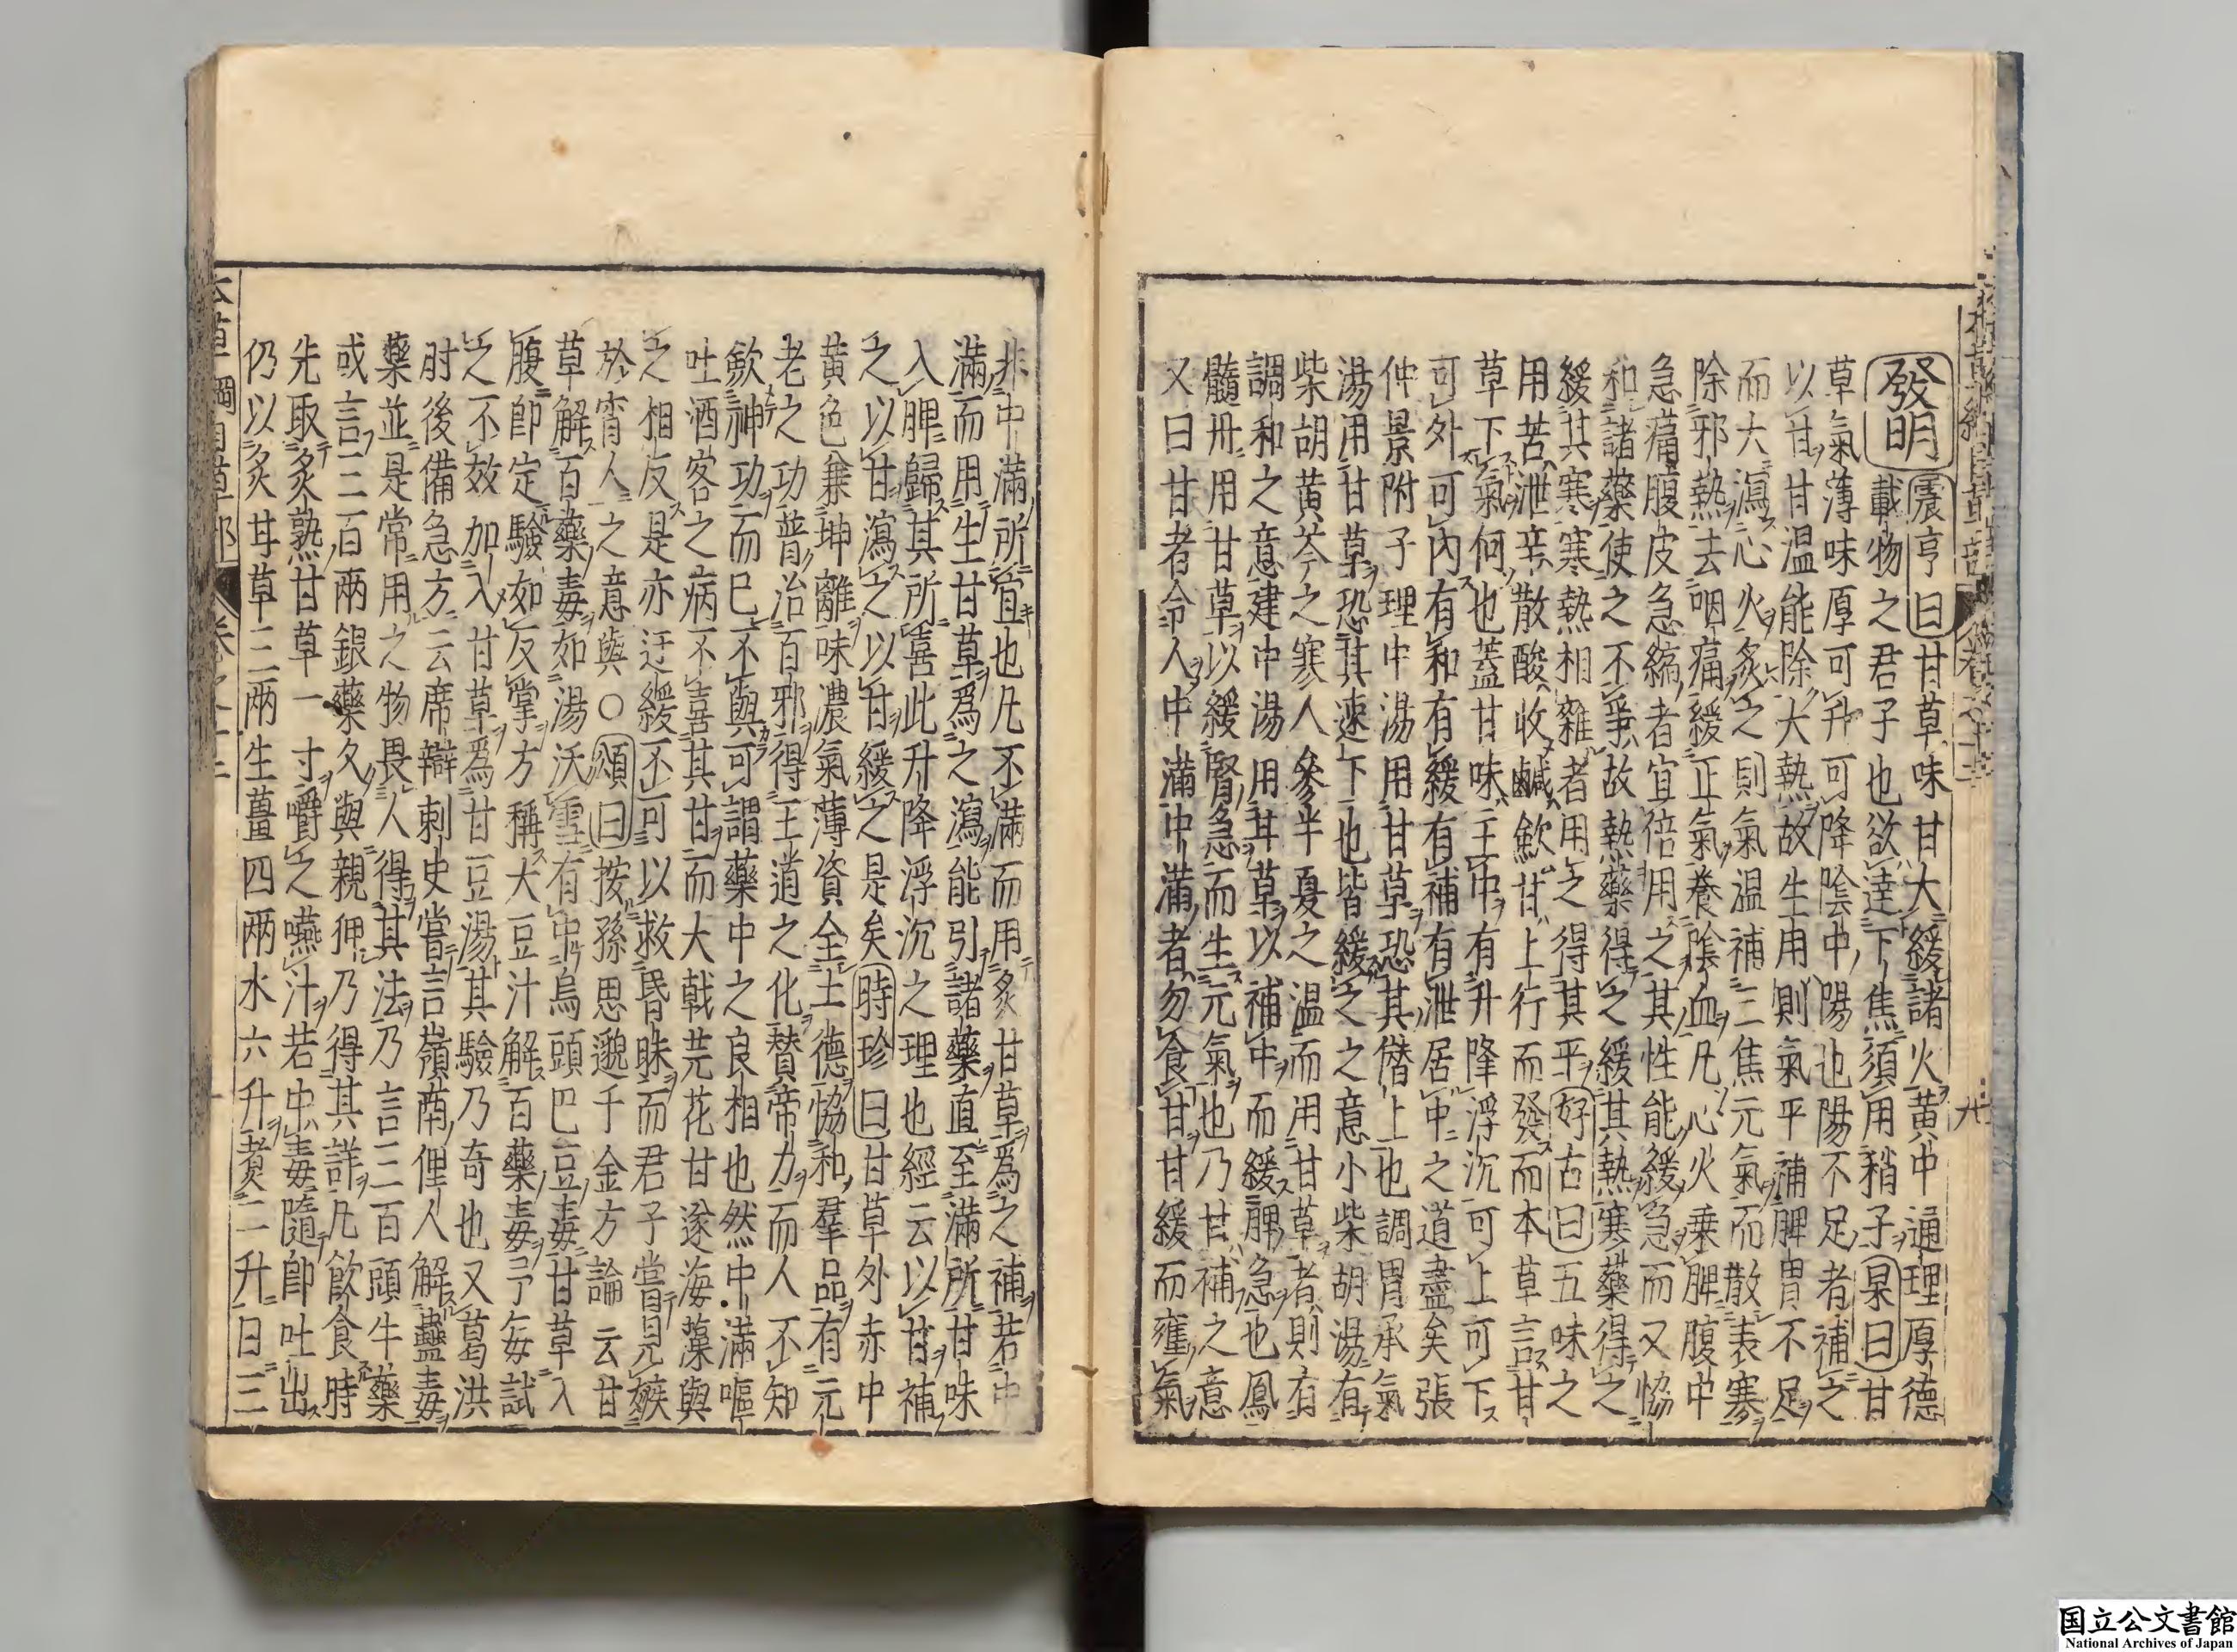 發明震亨曰甘草味甘大緩諸火黄中通理厚德
載物之君子也欲達下焦須用稍子杲曰甘
草氣薄味厚可升可降陰中陽也陽不足者補之
以甘甘温能除大熱故生用則氣平補脾胃不足
而大瀉心火炙之則氣温補三焦元氣而散表寒
除邪熱去咽痛緩正氣養陰血凡心火乗脾腹中
急痛腹皮急縮者宜倍用之其性能緩急而又恊
和諸藥使之不爭故熱藥得之緩其熱寒藥得之
緩其寒寒熱相雜者用之得其平好古曰五味之
用苦泄辛散酸收鹹歛甘上行而發而本草言甘
草下氣何也蓋甘味主中有升降浮沉可上可下
可外可内有和有緩有補有泄居中之道盡矣張
仲景附子理中湯用甘草恐其僭上也調胃承氣
湯用甘草恐其速下也皆緩之之意小柴胡湯有
柴胡黄芩之寒人參半夏之温而用甘草者則有
調和之意建中湯用甘草以補中而緩脾急也鳳
髓丹用甘草以緩腎急而生元氣也乃甘補之意
又曰甘者令人中滿中滿者勿食甘甘緩而壅氣
非中滿所宜也凡不滿而用炙甘草爲之補若中
滿而用生甘草爲之瀉能引諸藥直至滿所甘味
入脾歸其所喜此升降浮沉之理也經云以甘補
之以甘瀉之以甘緩之是矣時珍曰甘草外赤中
黄色兼坤離味濃氣薄資全土德恊和羣品有元
老之功普治百邪得王道之化賛帝力而人不知
歛神功而已不與可謂藥中之良相也然中滿嘔
吐酒客之病不喜其甘而大戟芫花甘遂海藻與
之相反是亦迂緩不可以救昏昧而君子嘗見嫉
於宵人之意與○頌曰按孫思邈千金方論云甘
草解百藥毒如湯沃雪有中烏頭巴豆毒甘草入
腹卽定驗如反掌方稱大豆汁解百藥毒予毎試
之不效加入甘草爲甘豆湯其驗乃奇也又葛洪
肘後備急方云席辯刺史嘗言嶺南俚人解蠱毒
藥並是常用之物畏人得其法乃言三百頭牛藥
或言三百兩銀藥久與親狎乃得其詳凡飮食時
先取炙熟甘草一寸嚼之嚥汁若中毒隨卽吐出
仍以炙甘草三兩生薑四兩水六升煑二升日三
国立公文書館
National Archives of Japan